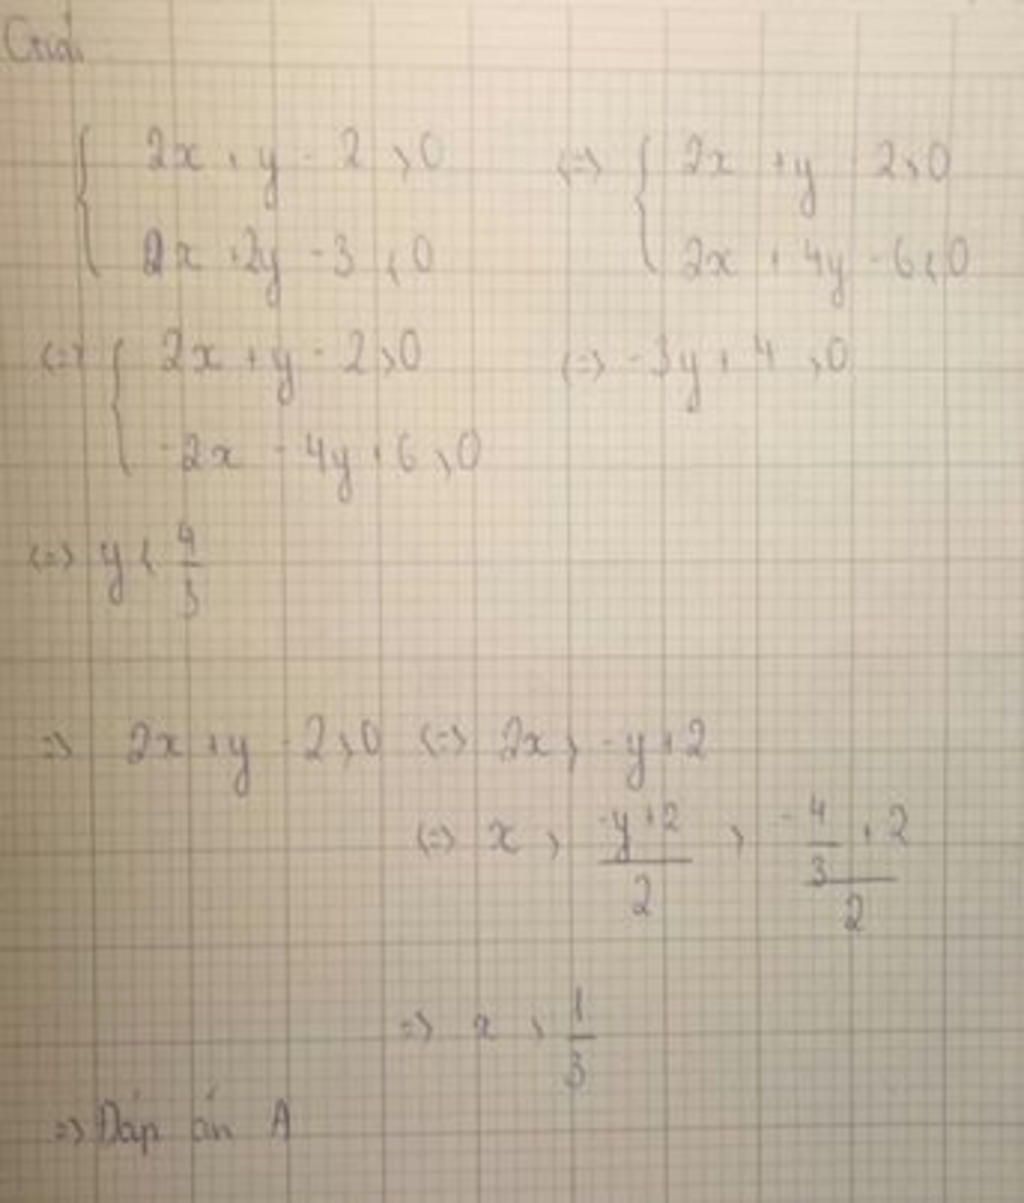 Giải
{ 2x + y - 2 > 0 <=> { 2x + y - 2 > 0
{ x + 2y - 3 < 0 { 2x + 4y - 6 < 0
<=> { 2x + y - 2 > 0 <=> -3y + 4 > 0
{ -2x - 4y + 6 > 0
<=> y < 4/3
=> 2x + y - 2 > 0 <=> 2x > -y + 2
<=> x > (-y + 2)/2 > (-4/3 + 2)/2
=> x > 1/3
=> Đáp án A